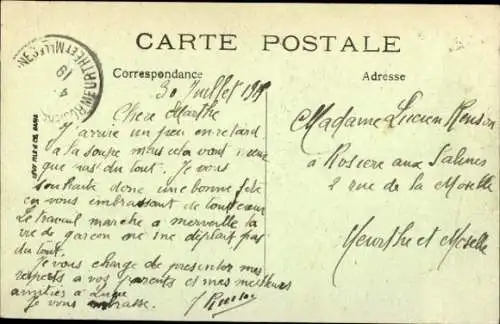 CARTE POSTALE
Correspondance
Adresse
30 Juillet 19
Chere Marthe
J'arrive un peu en retard
à la soupe mais cela vaut mieux
que pas du tout. Je vous
souhaite donc une bonne fête
en vous embrassant de tout cœur
Le travail marche a merveille la
vie de garçon ne me deplait pas
du tout.
Je vous charge de presenter mes
respects a vos parents et mes meilleurs
amitiés à
Je vous embrasse.
Madame Lucien
à Rosiere aux Salines
2 rue de la Moselle
Meurthe et Moselle